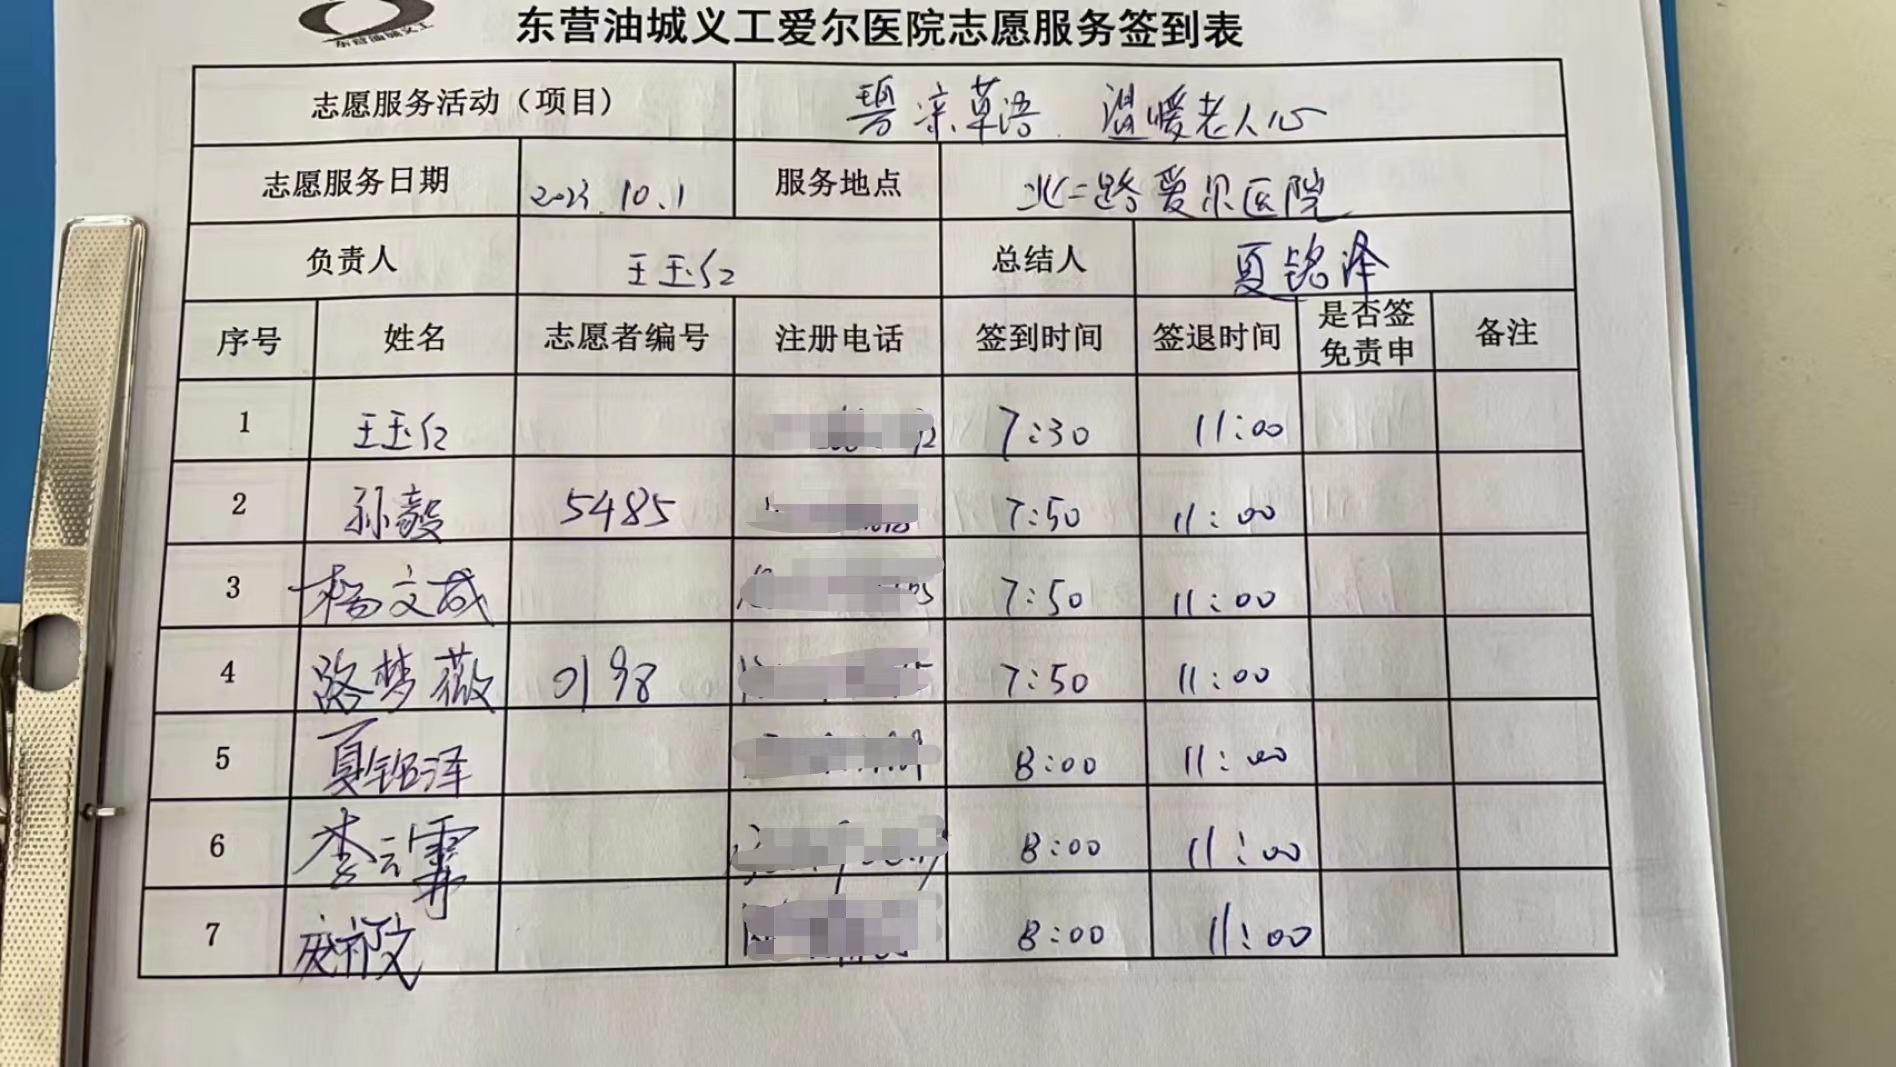 东营油城义工
东营油城义工爱尔医院志愿服务签到表
志愿服务活动（项目） 碧亲草语 温暖老人心
志愿服务日期 2023.10.1 服务地点 北二路爱尔医院
负责人 王玉仁 总结人 夏铭泽
序号 姓名 志愿者编号 注册电话 签到时间 签退时间 是否签免责申 备注
1 王玉仁 7:30 11:00
2 孙毅 5485 7:50 11:00
3 杨文彧 7:50 11:00
4 路梦薇 7:50 11:00
5 夏铭泽 8:00 11:00
6 李云霁 8:00 11:00
7 8:00 11:00